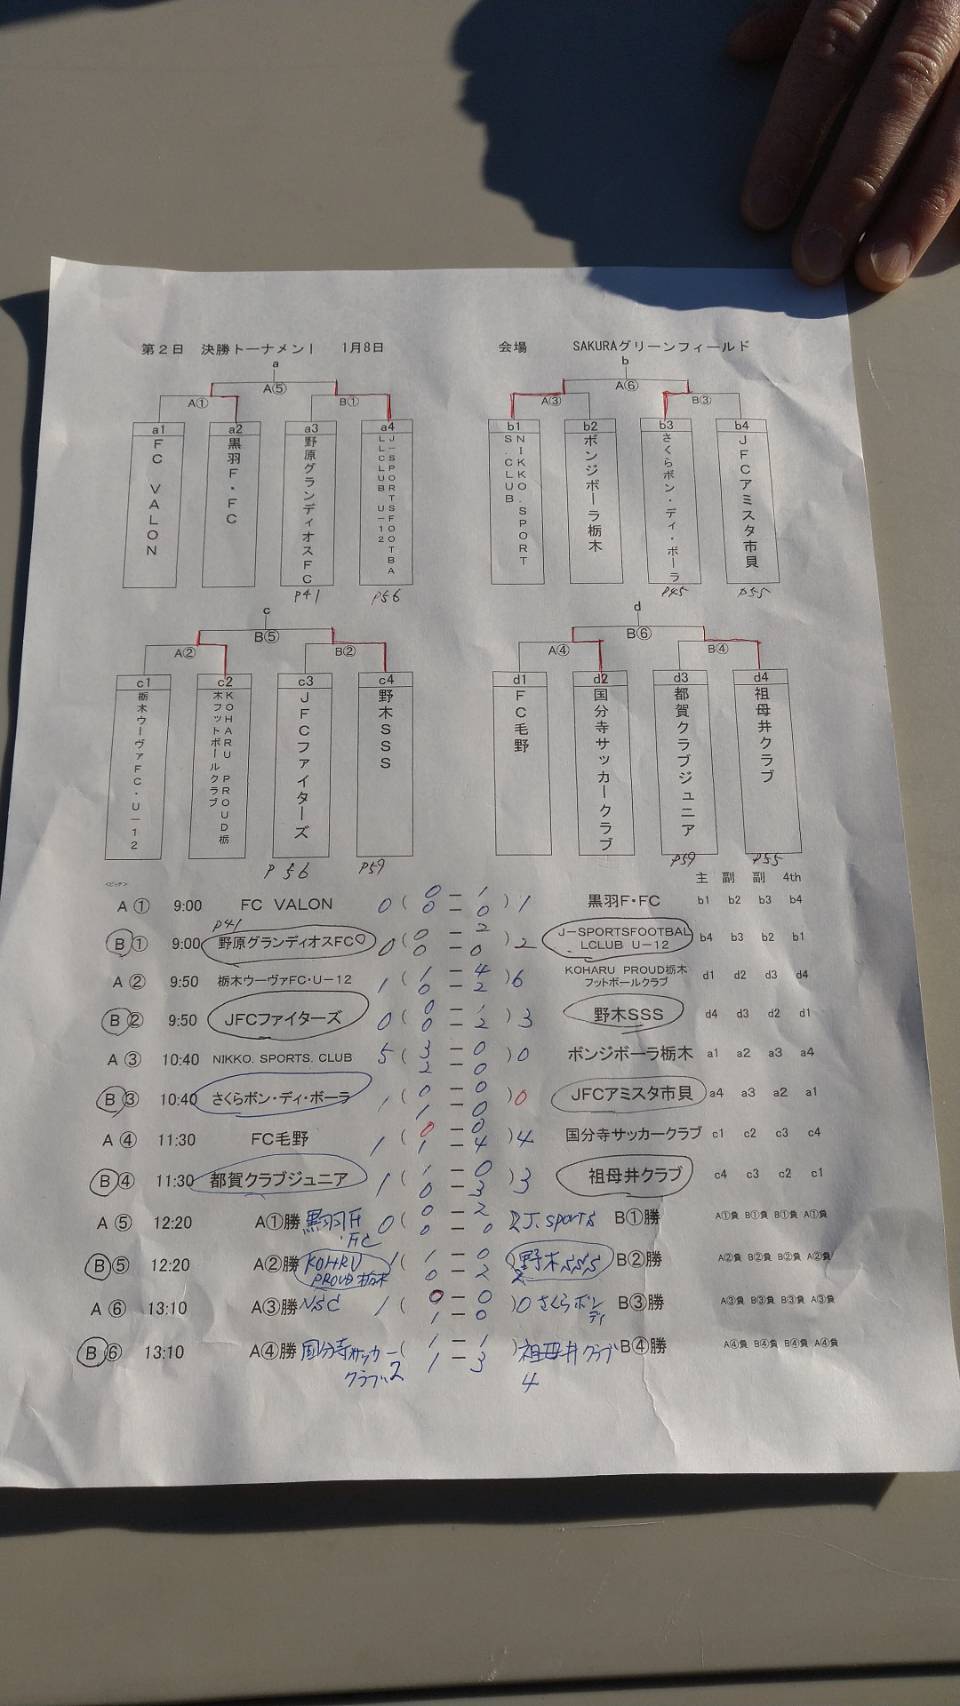 第２日　決勝トーナメント　1月8日　会場　SAKURAグリーンフィールド
a　b
A⑤　A⑥
A①　B①　A③　B③
a1　a2　a3　a4　b1　b2　b3　b4
FC VALON
黒羽F・FC
野原グランディオスFC
J-SPORTSFOOTBALLCLUB U-12
NIKKO.SPORTS.CLUB
ボンジボーラ栃木
さくらボン・ディ・ボーラ
JFCアミスタ市貝
P41　P56　P45　P55
c　d
B⑤　B⑥
A②　B②　A④　B④
c1　c2　c3　c4　d1　d2　d3　d4
栃木ウーヴァFC・U-12
KOHARU PROUD栃木フットボールクラブ
JFCファイターズ
野木SSS
FC毛野
国分寺サッカークラブ
都賀クラブジュニア
祖母井クラブ
P56　P59　P59　P55
主　副　副　4th
A① 9:00 FC VALON 0 ( 0 - 1 0 - 0 ) 1 黒羽F・FC b1 b2 b3 b4
P41
B① 9:00 野原グランディオスFC 0 ( 0 - 2 0 - 0 ) 2 J-SPORTSFOOTBALLCLUB U-12 b4 b3 b2 b1
A② 9:50 栃木ウーヴァFC・U-12 1 ( 1 - 4 0 - 2 ) 6 KOHARU PROUD栃木フットボールクラブ d1 d2 d3 d4
B② 9:50 JFCファイターズ 0 ( 0 - 1 0 - 2 ) 3 野木SSS d4 d3 d2 d1
A③ 10:40 NIKKO. SPORTS. CLUB 5 ( 3 - 0 2 - 0 ) 0 ボンジボーラ栃木 a1 a2 a3 a4
B③ 10:40 さくらボン・ディ・ボーラ 1 ( 0 - 0 1 - 0 ) 0 JFCアミスタ市貝 a4 a3 a2 a1
A④ 11:30 FC毛野 1 ( 0 - 0 1 - 4 ) 4 国分寺サッカークラブ c1 c2 c3 c4
B④ 11:30 都賀クラブジュニア 1 ( 1 - 0 0 - 3 ) 3 祖母井クラブ c4 c3 c2 c1
A⑤ 12:20 A①勝 黒羽F・FC 0 ( 0 - 2 0 - 0 ) 2 J.sports B①勝 A①負 B①負 B①負 A①負
B⑤ 12:20 A②勝 KOHRU PROUD栃木 1 ( 1 - 0 0 - 2 ) 2 野木SSS B②勝 A②負 B②負 B②負 A②負
A⑥ 13:10 A③勝 NSC 1 ( 0 - 0 1 - 0 ) 0 さくらボンディ B③勝 A③負 B③負 B③負 A③負
B⑥ 13:10 A④勝 国分寺サッカークラブ 2 ( 1 - 1 1 - 3 ) 4 祖母井クラブ B④勝 A④負 B④負 B④負 A④負